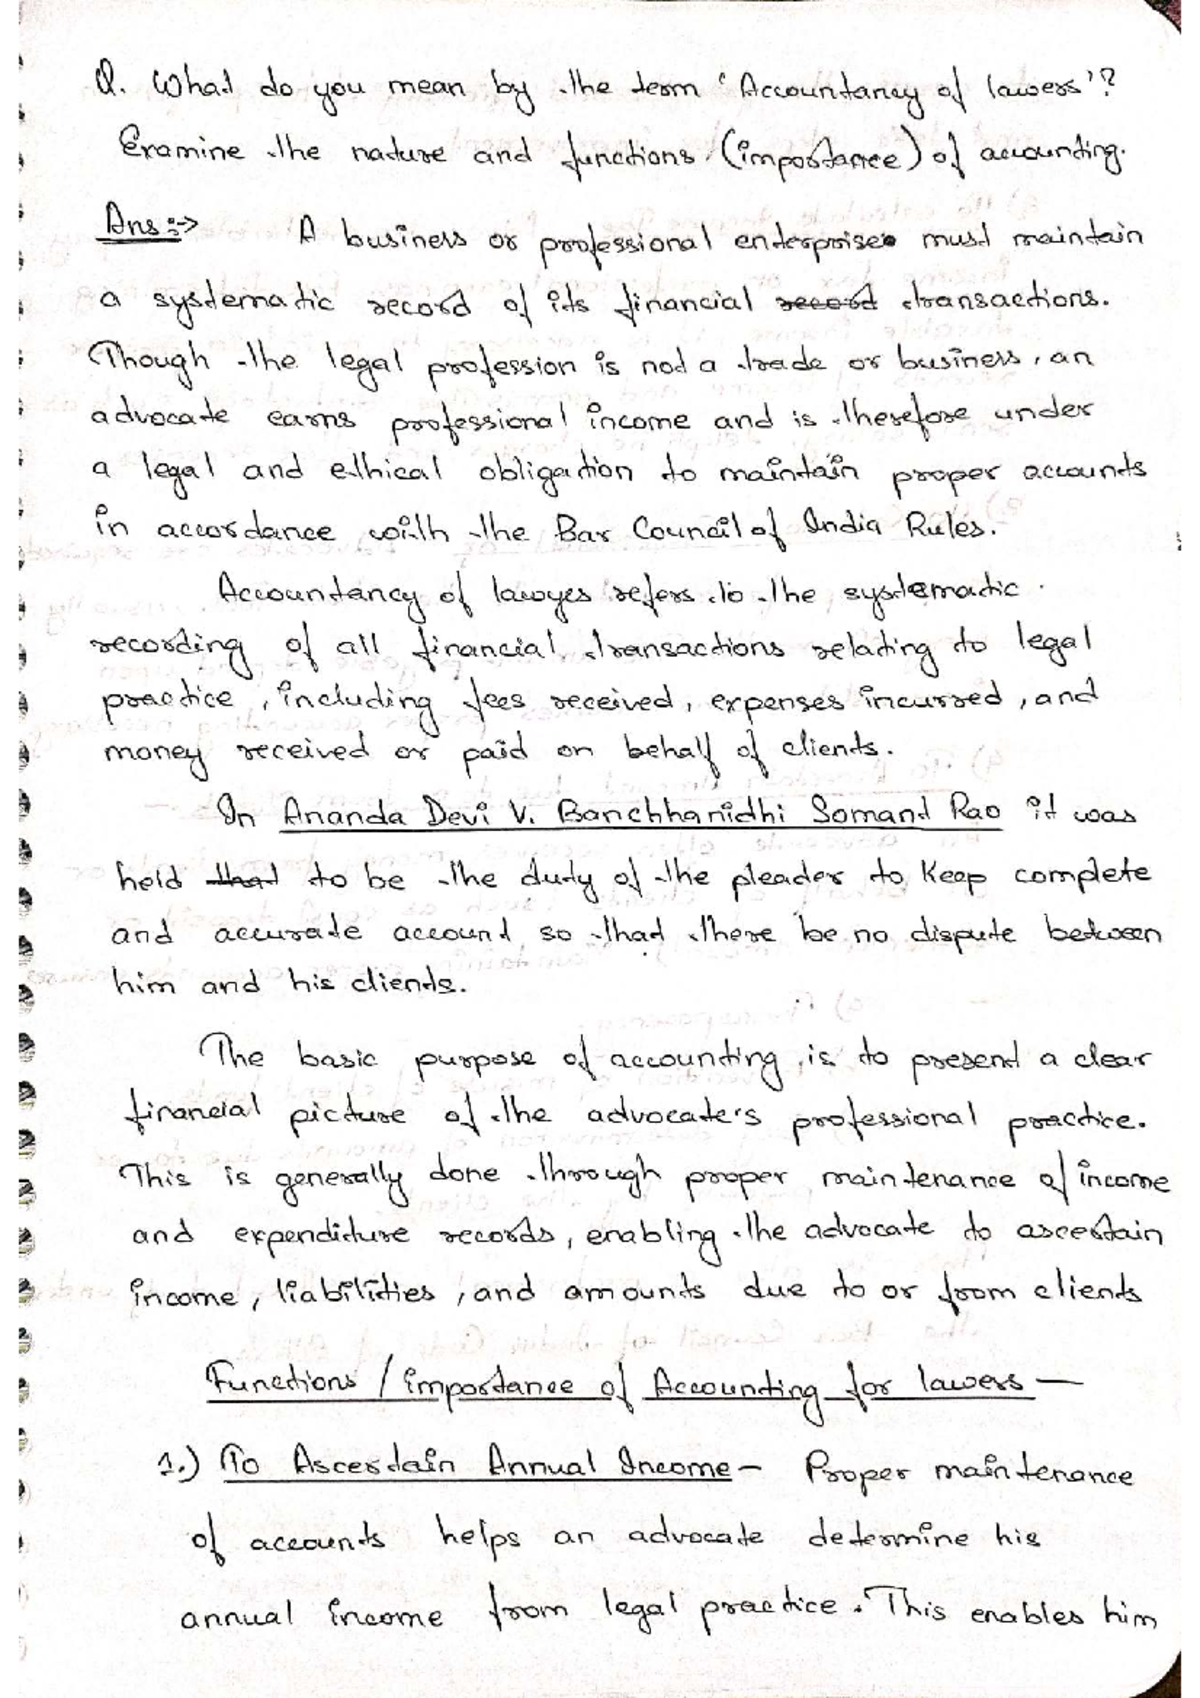 Q. What do you mean by the term 'Accountancy of lawers'?
Examine the nature and functions (importance) of accounting.
Ans :-> A business or professional enterprise must maintain
a systematic record of its financial record transactions.
Though the legal profession is not a trade or business, an
advocate earns professional income and is therefore under
a legal and ethical obligation to maintain proper accounts
in accordance with the Bar Council of India Rules.
Accountancy of lawyes refers to the systematic
recording of all financial transactions relating to legal
practice, including fees received, expenses incurred, and
money received or paid on behalf of clients.
In Ananda Devi V. Banchhanidhi Somand Rao it was
held that to be the duty of the pleader to keep complete
and accurate account so that there be no dispute between
him and his clients.
The basic purpose of accounting is to present a clear
financial picture of the advocate's professional practice.
This is generally done through proper maintenance of income
and expenditure records, enabling the advocate to ascertain
income, liabilities, and amounts due to or from clients
Functions / importance of Accounting for lawers —
1.) To Ascertain Annual Income – Proper maintenance
of accounts helps an advocate determine his
annual income from legal practice. This enables him